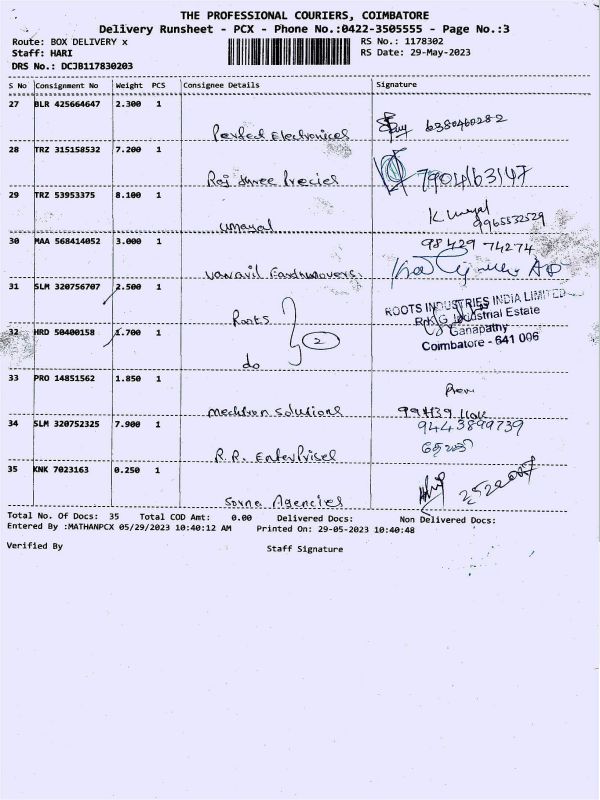 THE PROFESSIONAL COURIERS, COIMBATORE
Delivery Runsheet - PCX - Phone No.:0422-3505555 - Page No.:3
Route: BOX DELIVERY x RS No.: 1178302
Staff: HARI RS Date: 29-May-2023
DRS No.: DCJB117830203
S No Consignment No Weight PCS Consignee Details Signature
27 BLR 425664647 2.300 1
Perfect Electronices 6380460282
28 TRZ 315158532 7.200 1
Raj three Precies 7904163147
29 TRZ 53953375 8.100 1
umayal K umayal
9965532529
30 MAA 568414052 3.000 1 98429 74274
vanavil Earthmovers
31 SLM 320756707 2.500 1
Roots ROOTS INDUSTRIES INDIA LIMITED
R.K.G Industrial Estate
32 HRD 50400158 1.700 1 2 Ganapathy
do Coimbatore - 641 006
33 PRO 14851562 1.850 1
Mechtron Solutions
34 SLM 320752325 7.900 1 9443899739
R.R. Enterprises
35 KNK 7023163 0.250 1
Agencies
Total No. Of Docs: 35 Total COD Amt: 0.00 Delivered Docs: Non Delivered Docs:
Entered By :MATHANPCX 05/29/2023 10:40:12 AM Printed On: 29-05-2023 10:40:48
Verified By Staff Signature